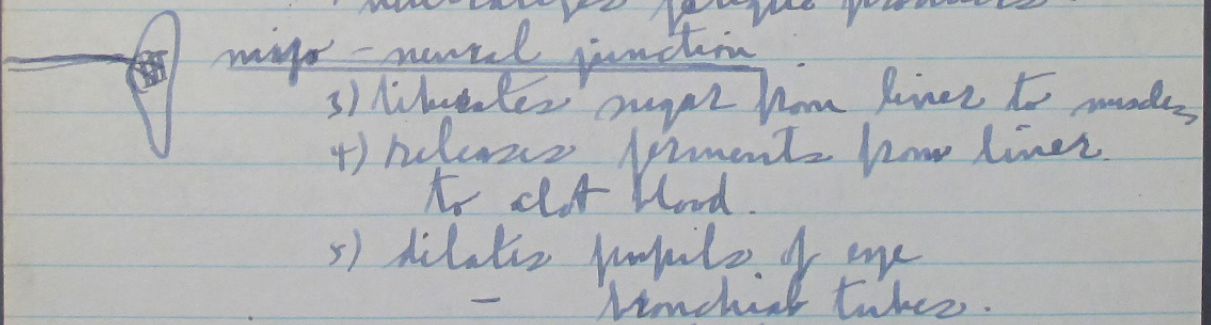 neutralizes fatigue products.
myo - neural junction
3) liberates sugar from liver to muscles
4) releases ferments from liver
to clot blood.
5) dilates pupils of eye
- bronchial tubes.